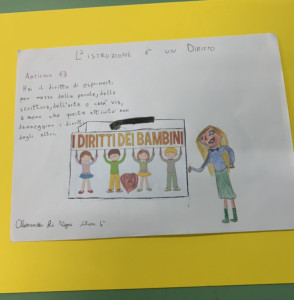 L'ISTRUZIONE È UN DIRITTO
Articolo 13
Hai il diritto di esprimerti
per mezzo della parola, della
scrittura, dell'arte e così via,
a meno che questa attività non
danneggino i diritti
degli altri.
I DIRITTI DEI BAMBINI